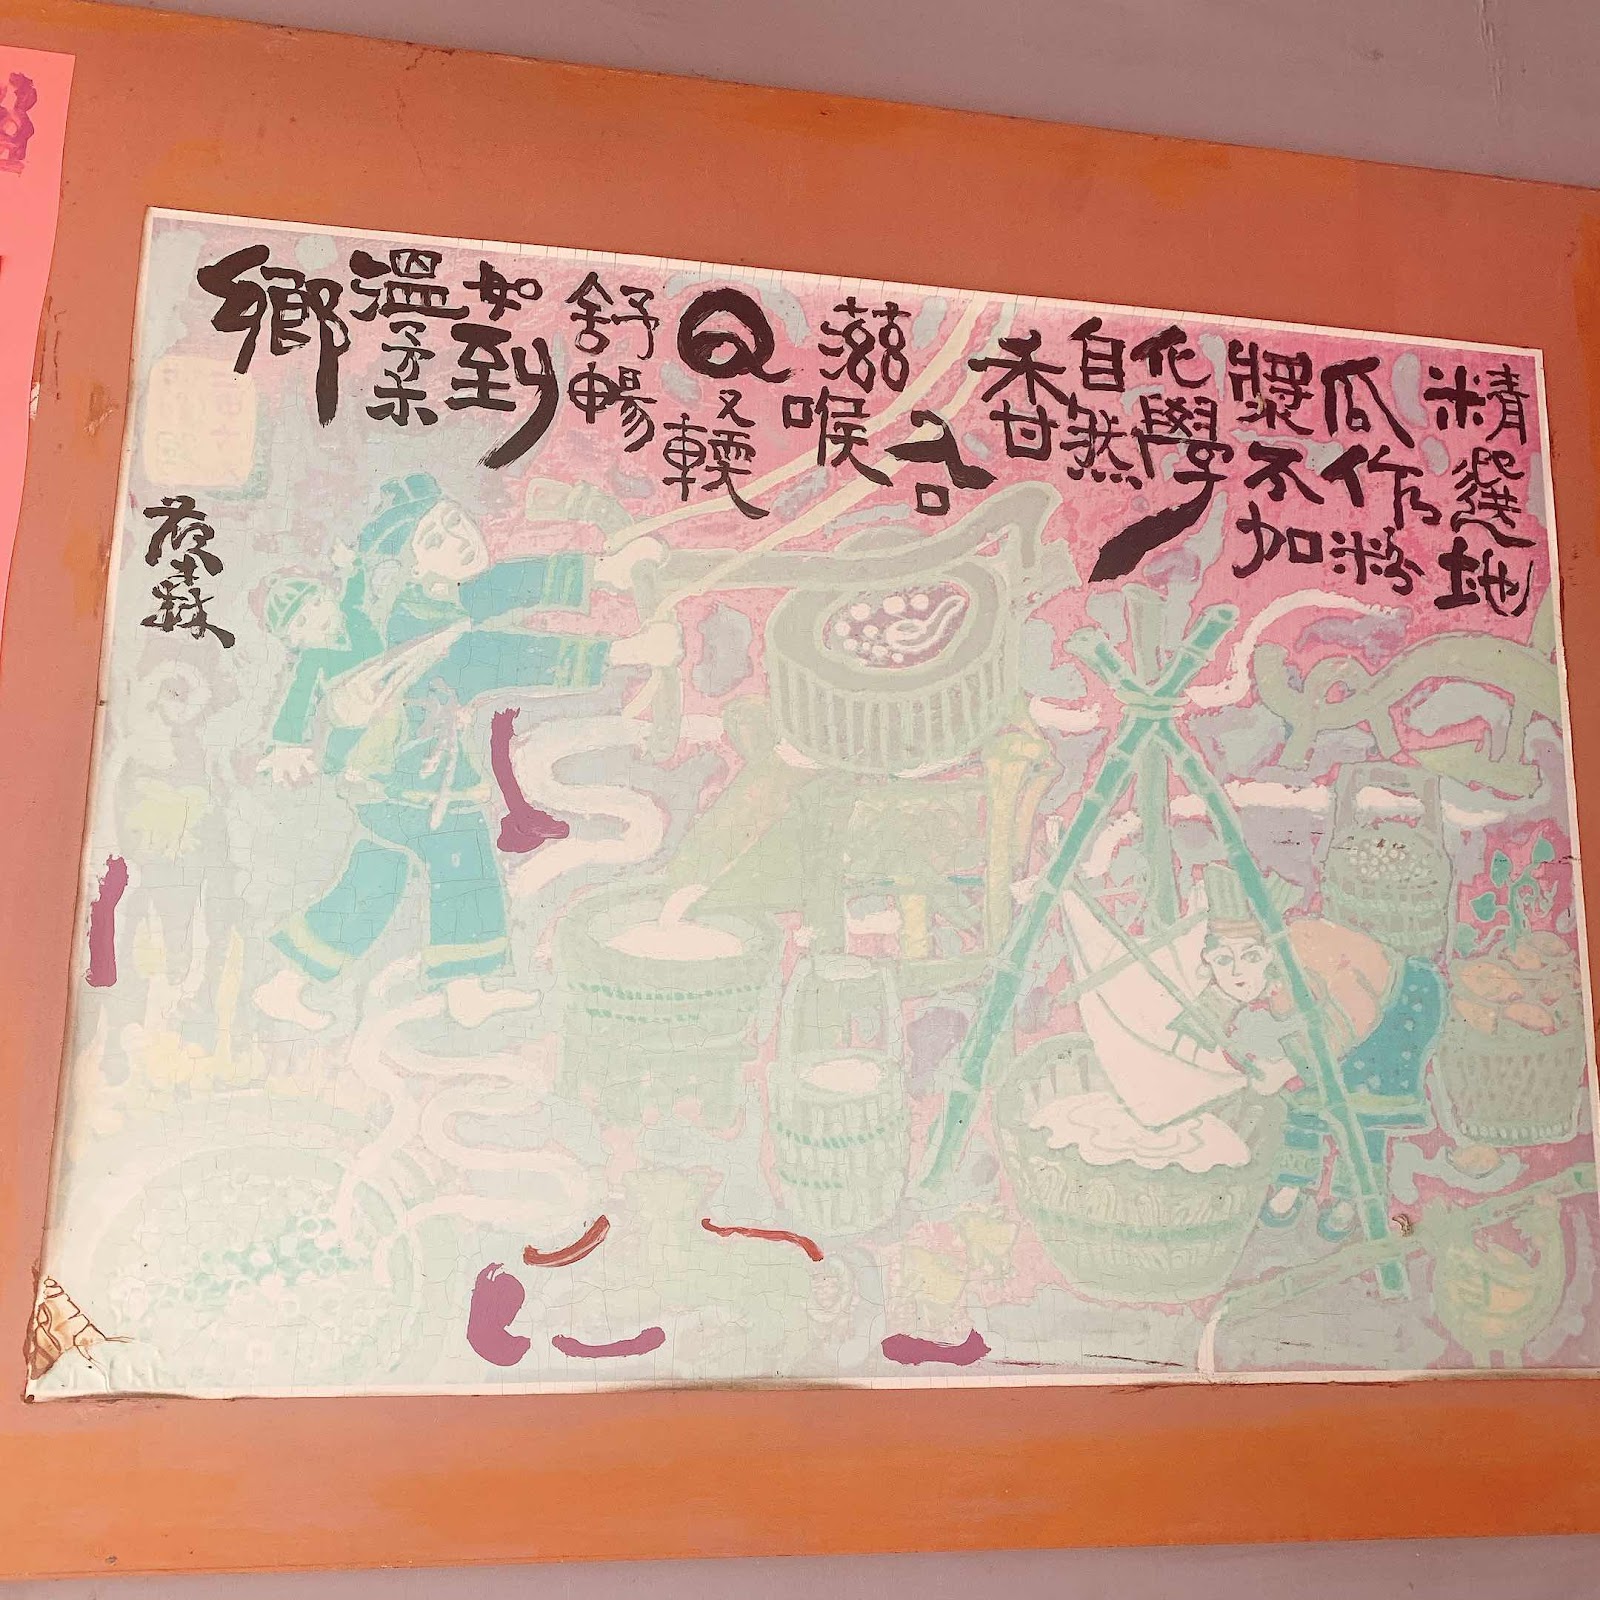 精選地
瓜作粉
漿不加
化學
自然
香
入口
滋喉
Q又軟
舒暢
如到
溫柔
鄉